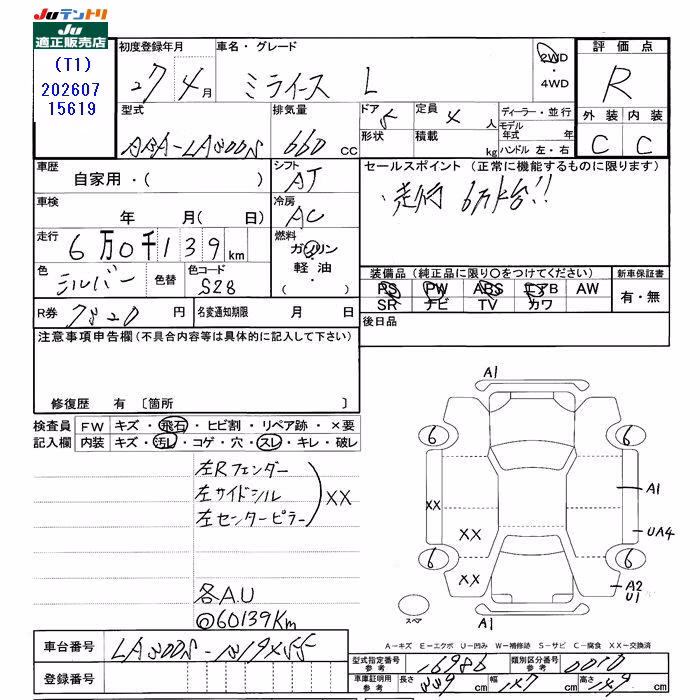 Juテントリ
Ju
適正販売店
(T1)
202607
15619
初度登録年月
27年4月
車名・グレード
ミライース L
2WD
・
4WD
評価点
R
外装 内装
C C
型式
排気量
660 cc
ドア
5
形状
定員
4 人
積載
kg
ディーラー・並行
モデル年式 年
ハンドル 左・右
車歴
自家用・( )
シフト
AT
セールスポイント (正常に機能するものに限ります)
走行 6万k台!!
車検
年 月( 日)
冷房
AC
走行
6万0千139km
燃料
ガソリン
・
軽油・
( )
色
シルバー
色替
色コード
S28
装備品 (純正品に限り〇をつけてください)
PS PW ABS エアB AW
SR ナビ TV カワ
新車保証書
有・無
R券 7820 円
名変通知期限 月 日
後日品
注意事項申告欄(不具合内容等は具体的に記入して下さい)
修復歴 有 〔箇所 〕
検査員 FW キズ・飛石・ヒビ割・リペア跡・×要
記入欄 内装 キズ・汚レ・コゲ・穴・スレ・キレ・破レ
左Rフェンダー
左サイドシル
左センターピラー
XX
各A.U
◎60139Km
A1
6
6
XX
XX
A1
UA4
6
XX
6
A2
U1
スペア
A1
A-キズ E-エクボ U-凹み W-補修跡 S-サビ C-腐食 XX-交換済
車台番号
登録番号
型式指定番号
参考
16986
類別区分番号
参考
0010
車庫証明用
参考
長さ
339cm
幅
147cm
高さ
149cm